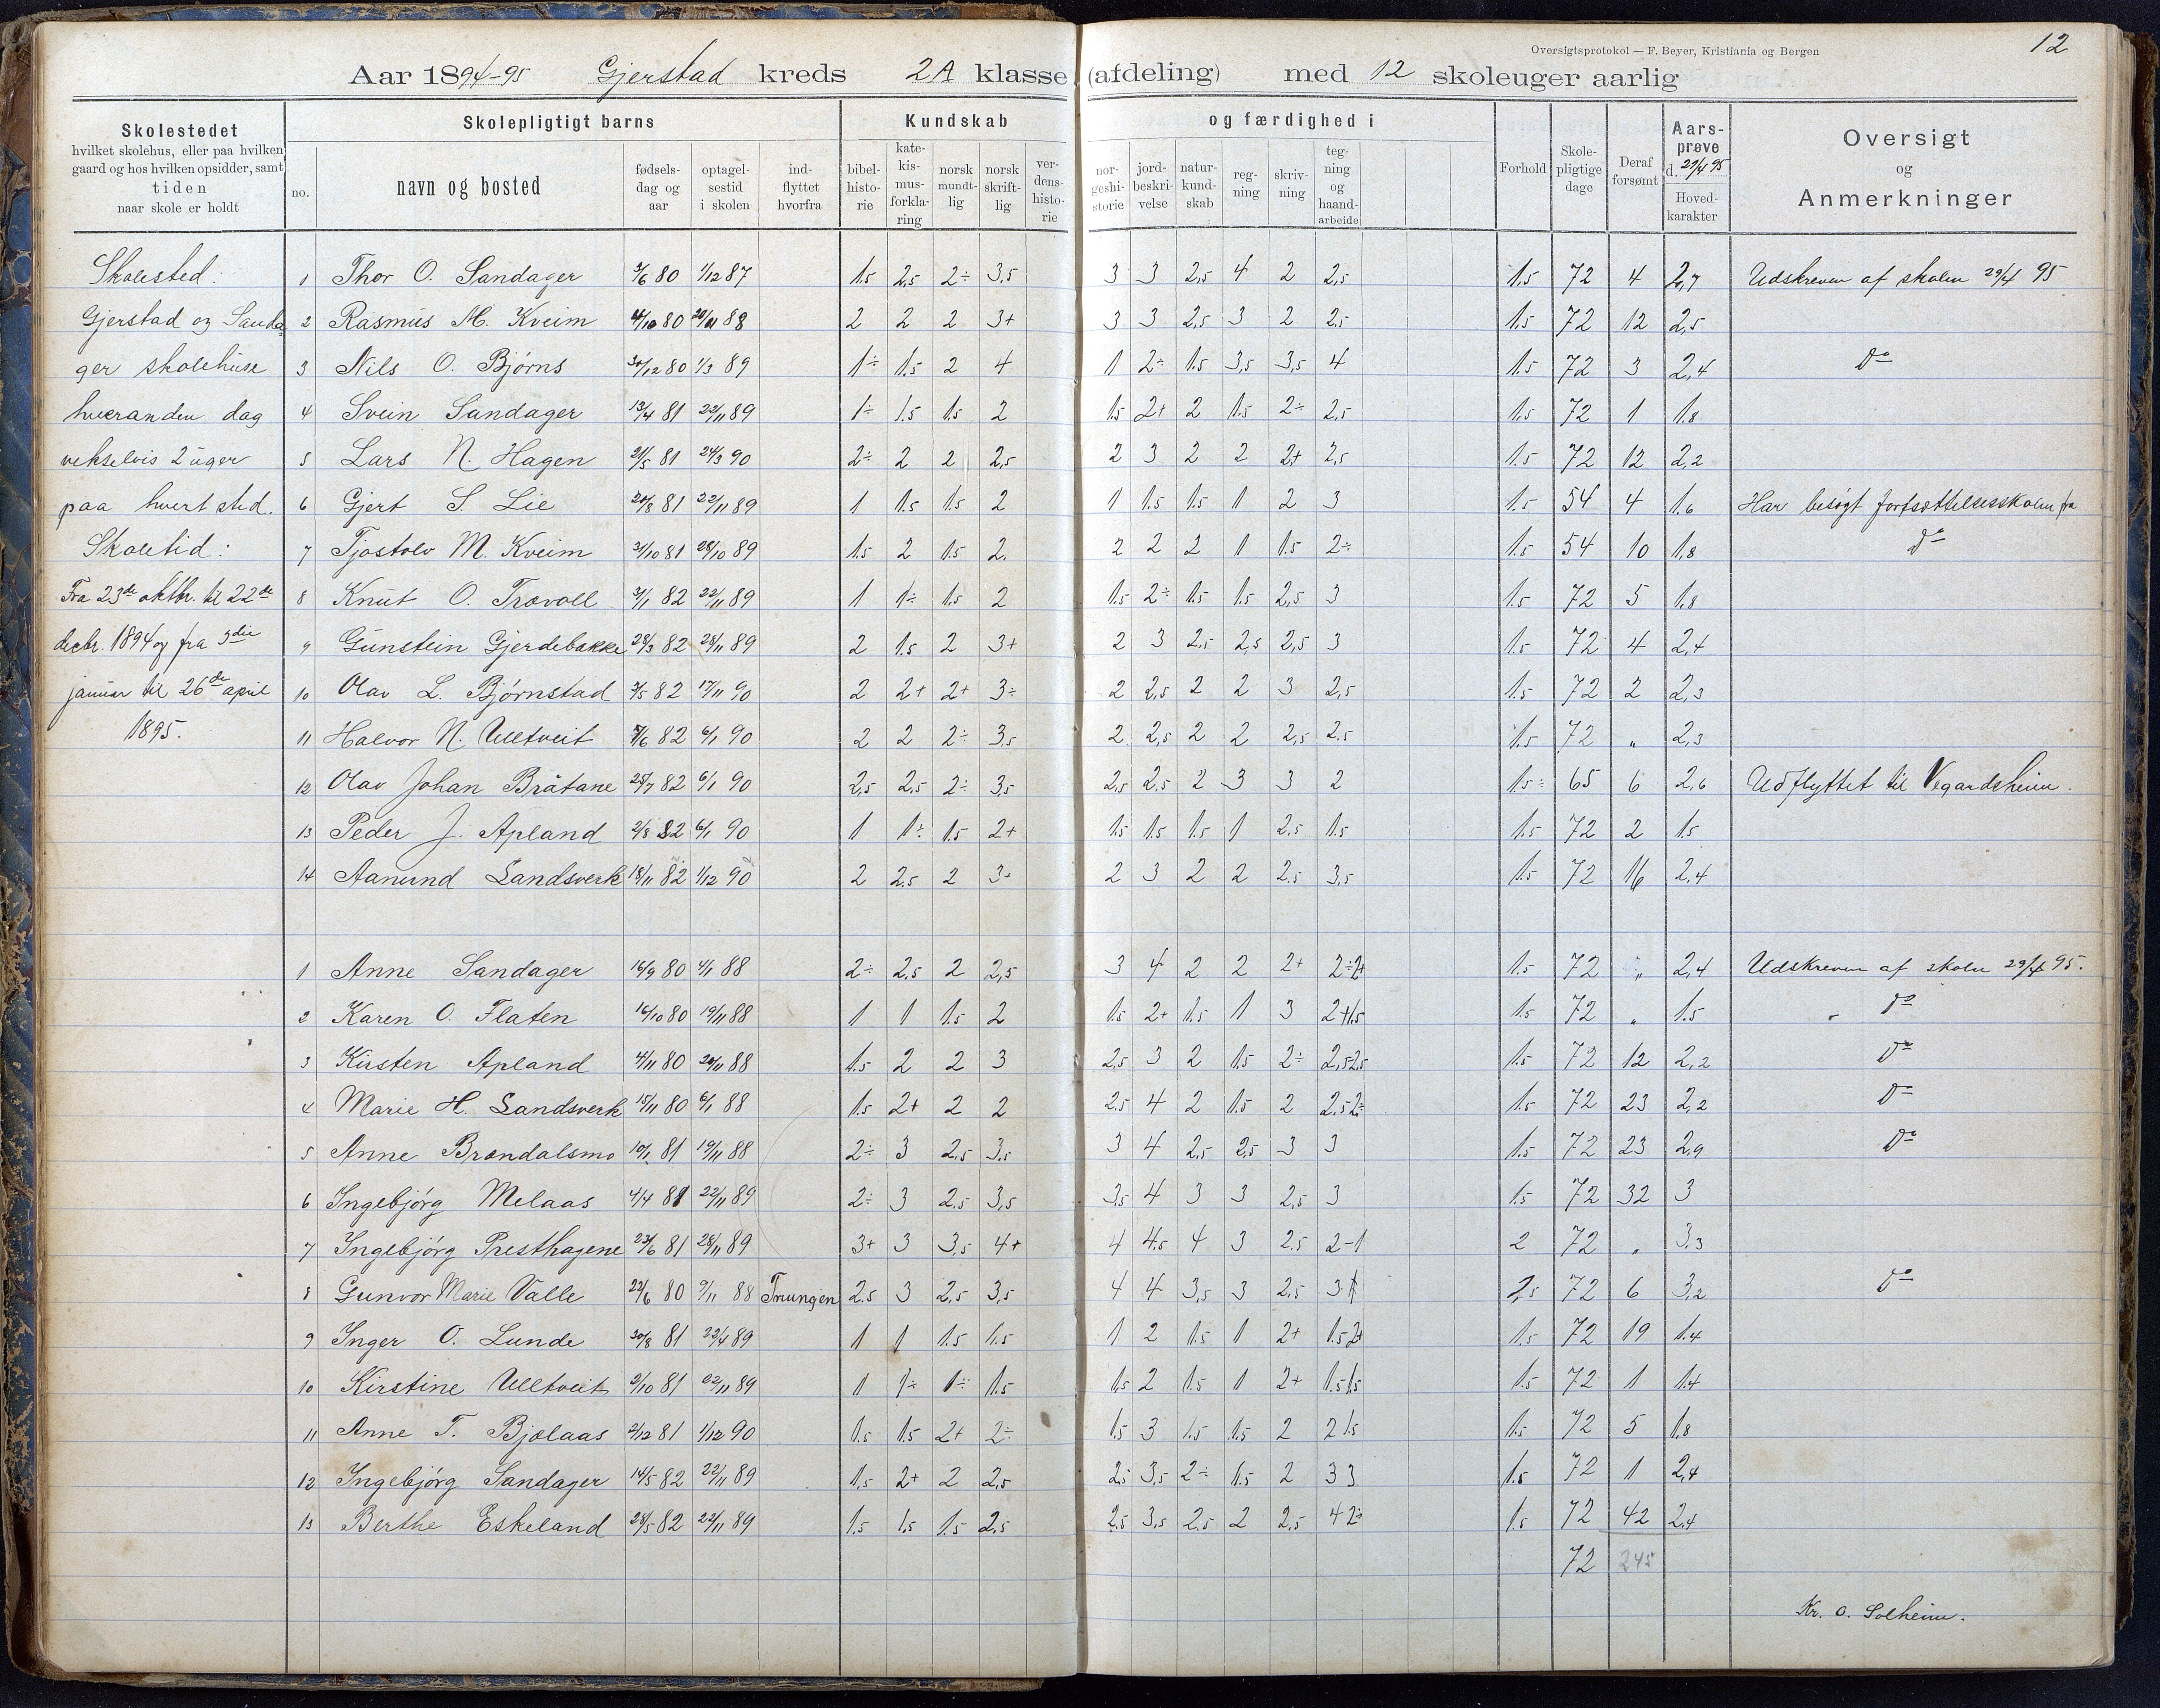 Oversigtsprotokol — F. Beyer, Kristiania og Bergen
12
Aar 1894-95 Gjerstad kreds 2A klasse (afdeling) med 12 skoleuger aarlig
Skolestedet
hvilket skolehus, eller paa hvilken
gaard og hos hvilken opsidder, samt
tiden
naar skole er holdt
Skolepligtigt barns
no.
navn og bosted
fødsels-
dag og
aar
optagel-
sestid
i skolen
ind-
flyttet
hvorfra
Kundskab og færdighed i
bibel-
histo-
rie
kate-
kis-
mus-
forkla-
ring
norsk
mundt-
lig
norsk
skrift-
lig
ver-
dens-
histo-
rie
nor-
geshi-
storie
jord-
beskri-
velse
natur-
kund-
skab
reg-
ning
skriv-
ning
teg-
ning
og
haand-
arbeide
Forhold
Skole-
pligtige
dage
Deraf
forsømt
Aars-
prøve
d. 29/4 95
Hoved-
karakter
Oversigt
og
Anmerkninger
Skolested:
Gjerstad og Sanda-
ger skolehuse
hveranden dag
vekselvis 2 uger
paa hvert sted.
Skoletid:
Fra 23de oktbr. til 22de
decbr. 1894 og fra 3die
januar til 26de april
1895.
1 Thor O. Sandager 3/6 80 1/12 87 1.5 2,5 2÷ 3,5 3 3 2,5 4 2 2,5 1.5 72 4 2,7 Udskreven af skolen 29/4 95
2 Rasmus M. Kveim 4/10 80 20/11 88 2 2 2 3+ 3 3 2,5 3 2 2,5 1.5 72 12 2,5
3 Nils O. Bjørns 30/12 80 1/3 89 1÷ 1.5 2 4 1 2÷ 1.5 3,5 3,5 4 1.5 72 3 2,4 Do
4 Svein Sandager 13/4 81 22/11 89 1÷ 1.5 1.5 2 1.5 2+ 2 1.5 2÷ 2,5 1.5 72 1 1.8
5 Lars N. Hagen 21/5 81 24/3 90 2÷ 2 2 2,5 2 3 2 2 2+ 2,5 1.5 72 12 2,2
6 Gjert S. Lie 20/8 81 22/11 89 1 1.5 1.5 2 1 1.5 1.5 1 2 3 1.5 54 4 1.6 Har besøgt fortsættelsesskolen fra
7 Tjostolv M. Kveim 31/10 81 28/10 89 1.5 2 1.5 2. 2 2 2 1 1.5 2÷ 1.5 54 10 1,8 Do
8 Knut O. Trovoll 31/1 82 22/11 89 1 1÷ 1.5 2 1.5 2÷ 1.5 1.5 2,5 3 1.5 72 5 1,8
9 Gunstein Gjerdebakke 28/3 82 28/11 89 2 1.5 2 3+ 2 3 2,5 2,5 2,5 3 1.5 72 4 2,4
10 Olav L. Bjørnstad 3/5 82 17/11 90 2 2+ 2+ 3÷ 2 2,5 2 2 3 2,5 1.5 72 2 2,3
11 Halvor N. Ulltveit 7/6 82 6/1 90 2 2 2÷ 3,5 2 2,5 2 2 2,5 2.5 1.5 72 " 2,3
12 Olav Johan Bråtane 25/7 82 6/1 90 2,5 2,5 2÷ 3,5 2,5 2,5 2 3 3 2 1.5÷ 65 6 2,6 Udflyttet til Vegardsheim.
13 Peder J. Apland 2/8 82 6/1 90 1 1÷ 1.5 2+ 1.5 1.5 1.5 1 2.5 1.5 1.5 72 2 1.5
14 Aanund Landsverk 18/11 82 1/12 90 2 2.5 2 3+ 2 3 2 2 2.5 3,5 1.5 72 16 2,4
1 Anne Sandager 16/9 80 4/1 88 2÷ 2,5 2 2,5 3 4 2 2 2+ 2÷2+ 1.5 72 " 2,4 Udskreven af skolen 29/4 95.
2 Karen O. Flaten 16/10 80 19/11 88 1 1 1.5 2 1.5 2+ 1.5 1 3 2+1.5 1.5 72 " 1.5 Do
3 Kirsten Apland 4/11 80 20/11 88 1.5 2 2 3 2,5 3 2 1.5 2÷ 2,5 2.5 1.5 72 12 2,2 Do
4 Marie H. Landsverk 15/11 80 6/1 88 1.5 2+ 2 2 2.5 4 2 1.5 2 2,5 2÷ 1.5 72 23 2,2 Do
5 Anne Brændalsmo 10/1 81 19/11 88 2÷ 3 2,5 3,5 3 4 2,5 2,5 3 3 1.5 72 23 2,9 Do
6 Ingebjørg Melaas 4/4 81 22/11 89 2÷ 3 2.5 3,5 3,5 4 3 3 2,5 3 1.5 72 32 3
7 Ingebjørg Presthagene 23/6 81 28/11 89 3+ 3 3,5 4+ 4 4.5 4 3 2.5 2-1 2 72 " 3.3
8 Gunvor Marie Valle 22/6 80 9/11 88 Truungen 2.5 3 2,5 3,5 4 4 3,5 3 2,5 3 1 2,5 72 6 3,2 Do
9 Inger O. Lunde 30/8 81 23/4 89 1 1 1.5 1.5 1 2 1.5 1 2+ 1.5 2+ 1.5 72 19 1.4
10 Kirstine Ulltveit 9/10 81 22/11 89 1 1÷ 1÷ 1.5 1,5 2 1.5 1 2+ 1.5 1.5 1.5 72 1 1.4
11 Anne T. Bjølaas 2/12 81 1/12 90 1.5 1.5 2+ 2÷ 1.5 3 1.5 1.5 2 2 1.5 1.5 72 5 1,8
12 Ingebjørg Sandager 14/5 82 22/11 89 1,5 2+ 2 2,5 2,5 3,5 2÷ 1.5 2 3 3 1.5 72 1 2,4
13 Berthe Eskeland 28/5 82 22/11 89 1.5 1,5 1.5 2,5 2.5 3,5 2.5 2 2,5 4 2÷ 1.5 72 42 2,4
72 245
Kr. O. Solheim.